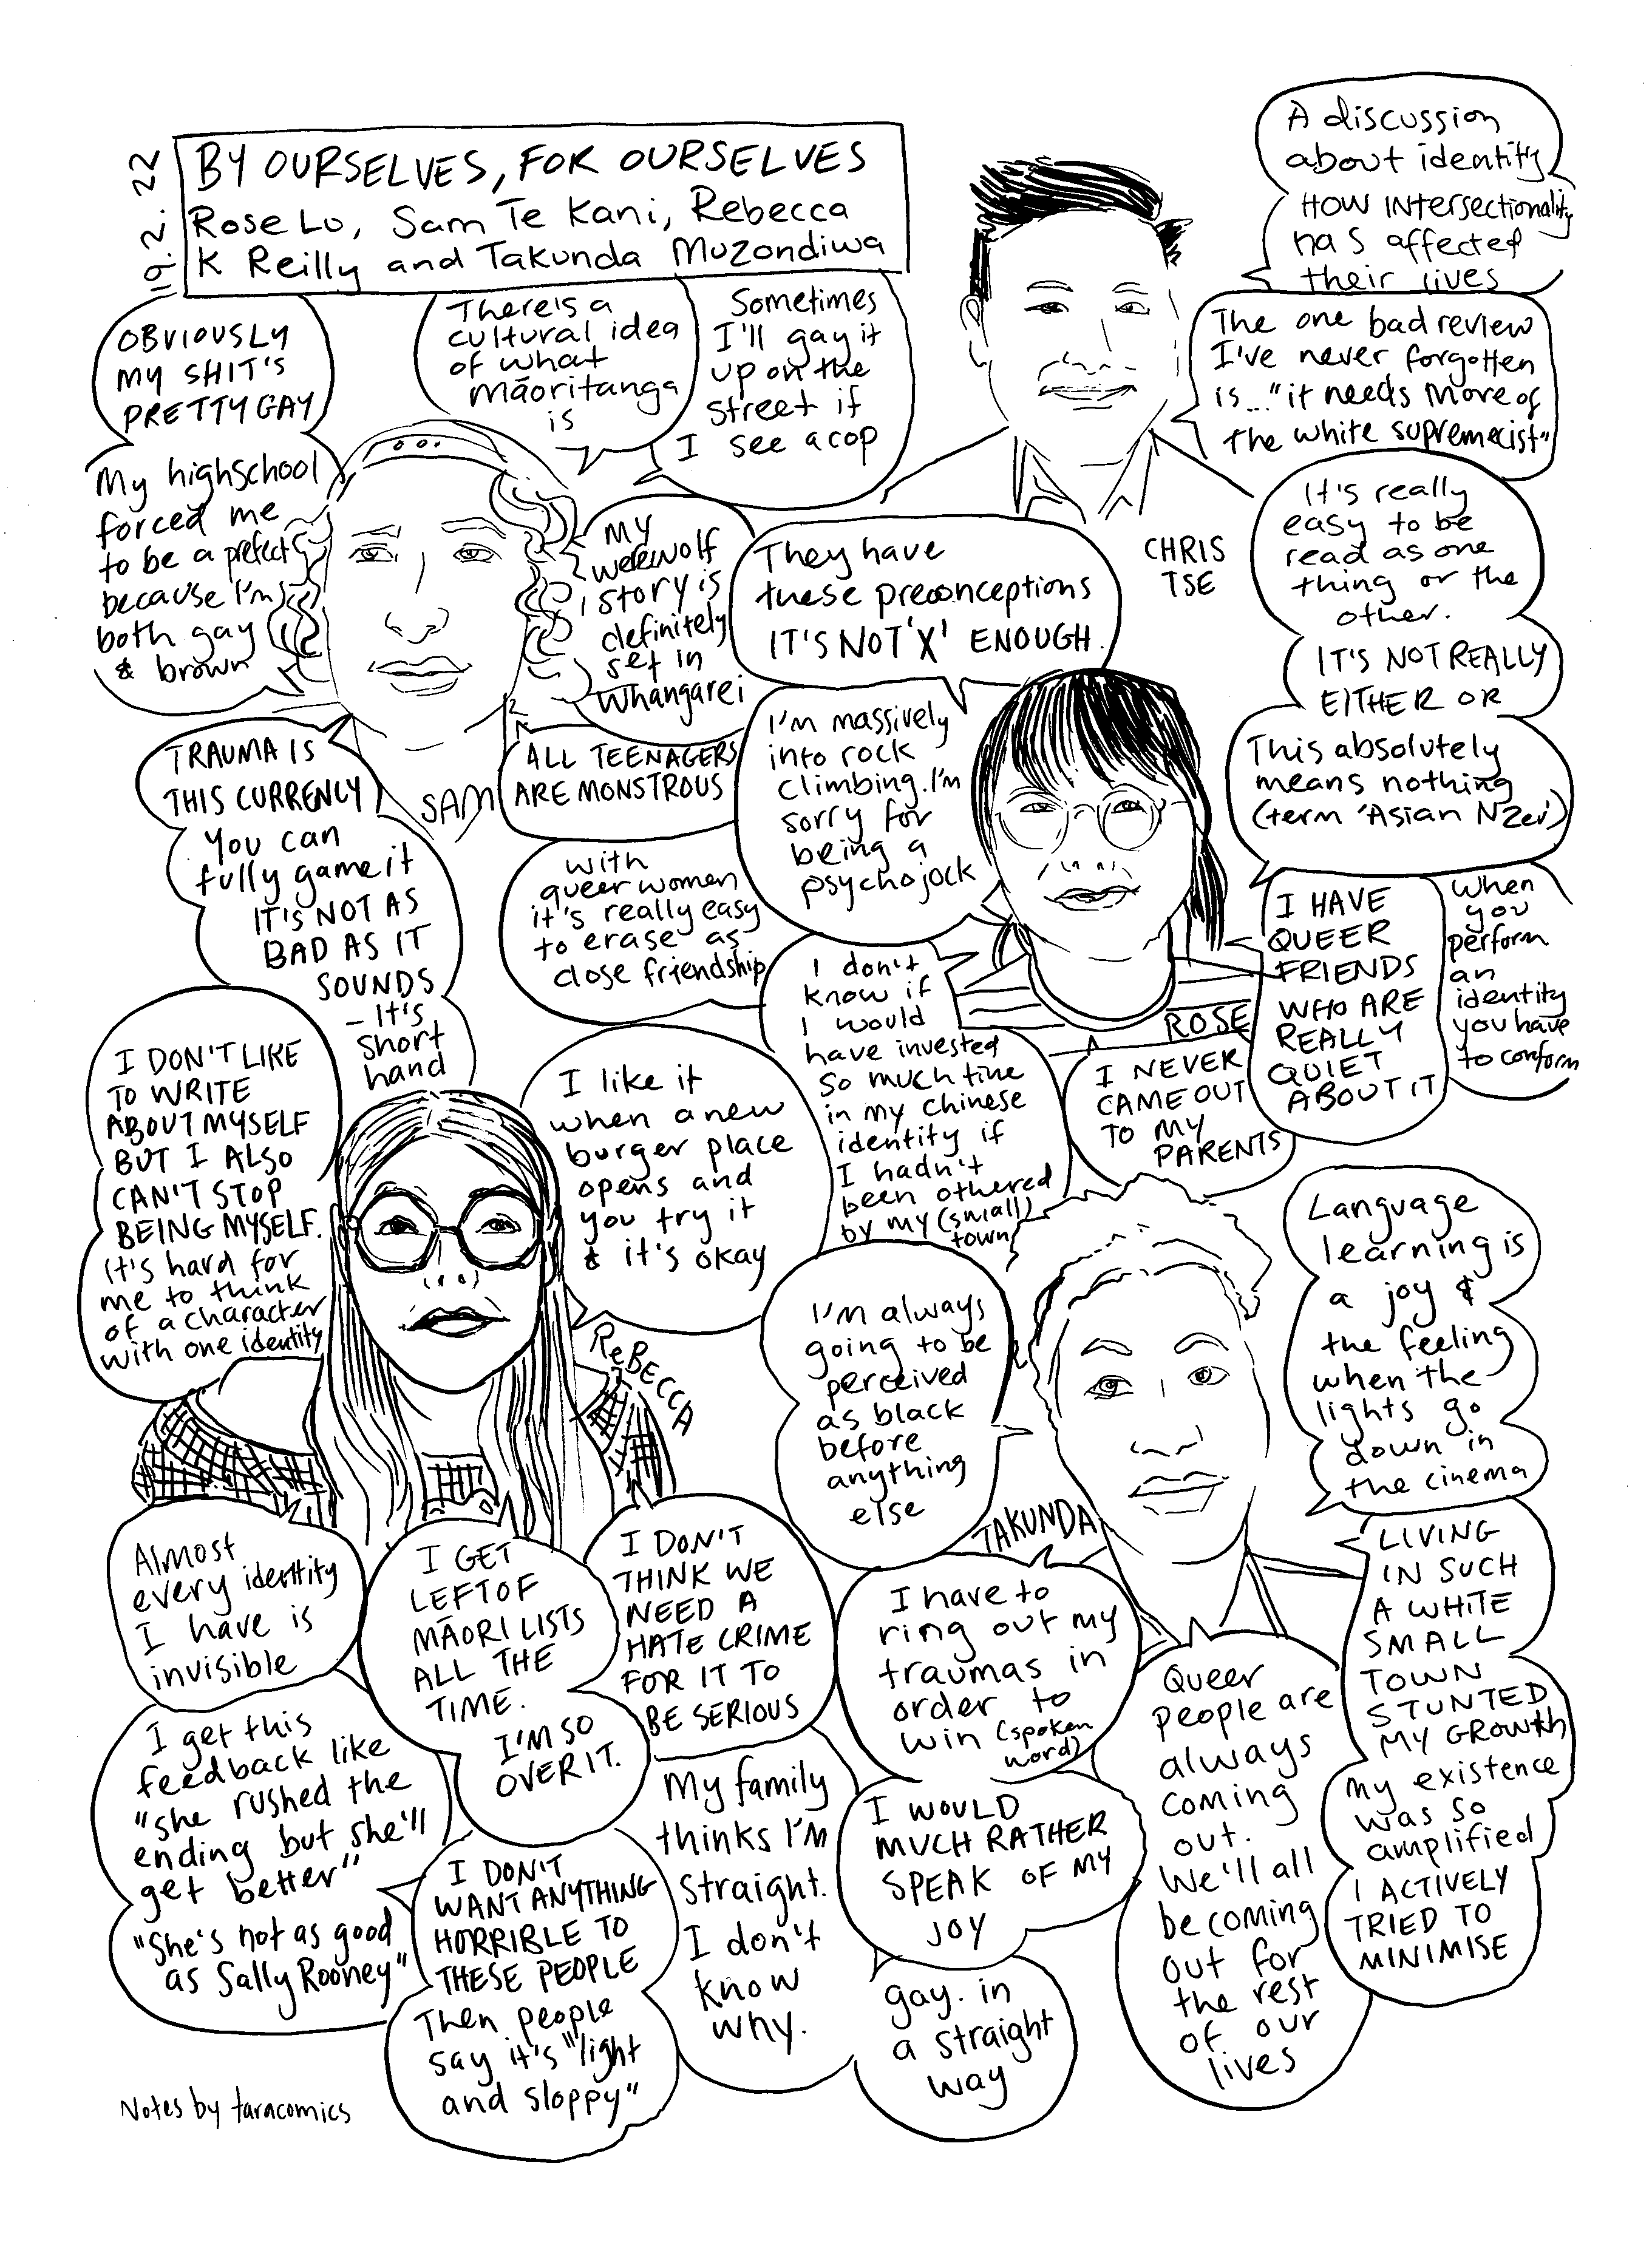 19.2.22
BY OURSELVES, FOR OURSELVES
Rose Lu, Sam Te Kani, Rebecca
K Reilly and Takunda Muzondiwa
A discussion
about identity
HOW INTERSECTIONALITY
HAS affected
their lives
The one bad review
I've never forgotten
is..."it needs more of
the white supremecist"
CHRIS
TSE
OBVIOUSLY
MY SHIT'S
PRETTY GAY
My highschool
forced me
to be a prefect
because I'm
both gay
& brown
There's a
cultural idea
of what
māoritanga
is
Sometimes
I'll gay it
up on the
street if
I see a cop
My
werewolf
story is
definitely
set in
Whangarei
ALL TEENAGERS
ARE MONSTROUS
SAM
TRAUMA IS
THIS CURRENCY
you can
fully game it
IT'S NOT AS
BAD AS IT
SOUNDS
- It's
short
hand
They have
these preconceptions
IT'S NOT 'X' ENOUGH.
I'm massively
into rock
climbing. I'm
sorry for
being a
psycho jock
with
queer women
it's really easy
to erase as
close friendship
I don't
know if
I would
have invested
so much time
in my Chinese
identity if
I hadn't
been othered
by my (small)
town
It's really
easy to be
read as one
thing or the
other.
IT'S NOT REALLY
EITHER OR
This absolutely
means nothing
(term 'Asian NZer')
I HAVE
QUEER
FRIENDS
WHO ARE
REALLY
QUIET
ABOUT IT
When
you
perform
an
identity
you have
to conform
ROSE
I NEVER
CAME OUT
TO MY
PARENTS
I DON'T LIKE
TO WRITE
ABOUT MYSELF
BUT I ALSO
CAN'T STOP
BEING MYSELF.
It's hard for
me to think
of a character
with one identity
I like it
when a new
burger place
opens and
you try it
& it's okay
REBECCA
Almost
every identity
I have is
invisible
I GET
LEFT OF
MĀORI LISTS
ALL THE
TIME.
I'M SO
OVER IT.
I DON'T
THINK WE
NEED A
HATE CRIME
FOR IT TO
BE SERIOUS
I get this
feedback like
"she rushed the
ending but she'll
get better"
"She's not as good
as Sally Rooney"
I DON'T
WANT ANYTHING
HORRIBLE TO
THESE PEOPLE
Then people
say it's "light
and sloppy"
My family
thinks I'm
straight.
I don't
know
why.
I'm always
going to be
perceived
as black
before
anything
else
TAKUNDA
Language
learning is
a joy &
the feeling
when the
lights go
down in
the cinema
LIVING
IN SUCH
A WHITE
SMALL
TOWN
STUNTED
MY GROWTH
my existence
was so
amplified
I ACTIVELY
TRIED TO
MINIMISE
I have to
ring out my
traumas in
order to
win (spoken
word)
I WOULD
MUCH RATHER
SPEAK OF MY
JOY
gay. in
a straight
way
Queer
people are
always
coming
out.
We'll all
be coming
out for
the rest
of our
lives
Notes by taracomics